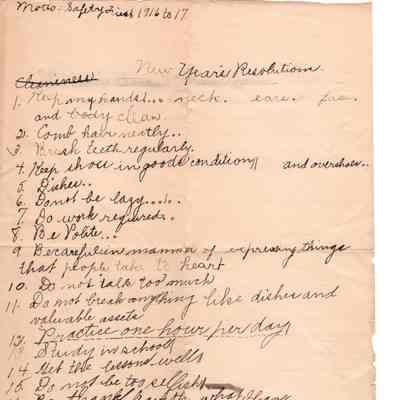 Motto: Safety First 1916 to 17
New Year's Resolution
Cleaniness
1. Keep my hands... neck. ears. face
and body clean
2. Comb hair neatly..
3. Brush teeth regularly.
4. Keep shoes in good condition, and overshoes..
5. Dishes..
6. Do not be lazy.....
7. Do work required..
8. Be Polite...
9. Be careful in manner of expressing things
that people take to heart
10. Do not talk too much
11. Do not break anything like dishes and
valuable assets
12. Practice one hour per day
13. Study in school
14. Get the lessons well
15. Do not be too selfish